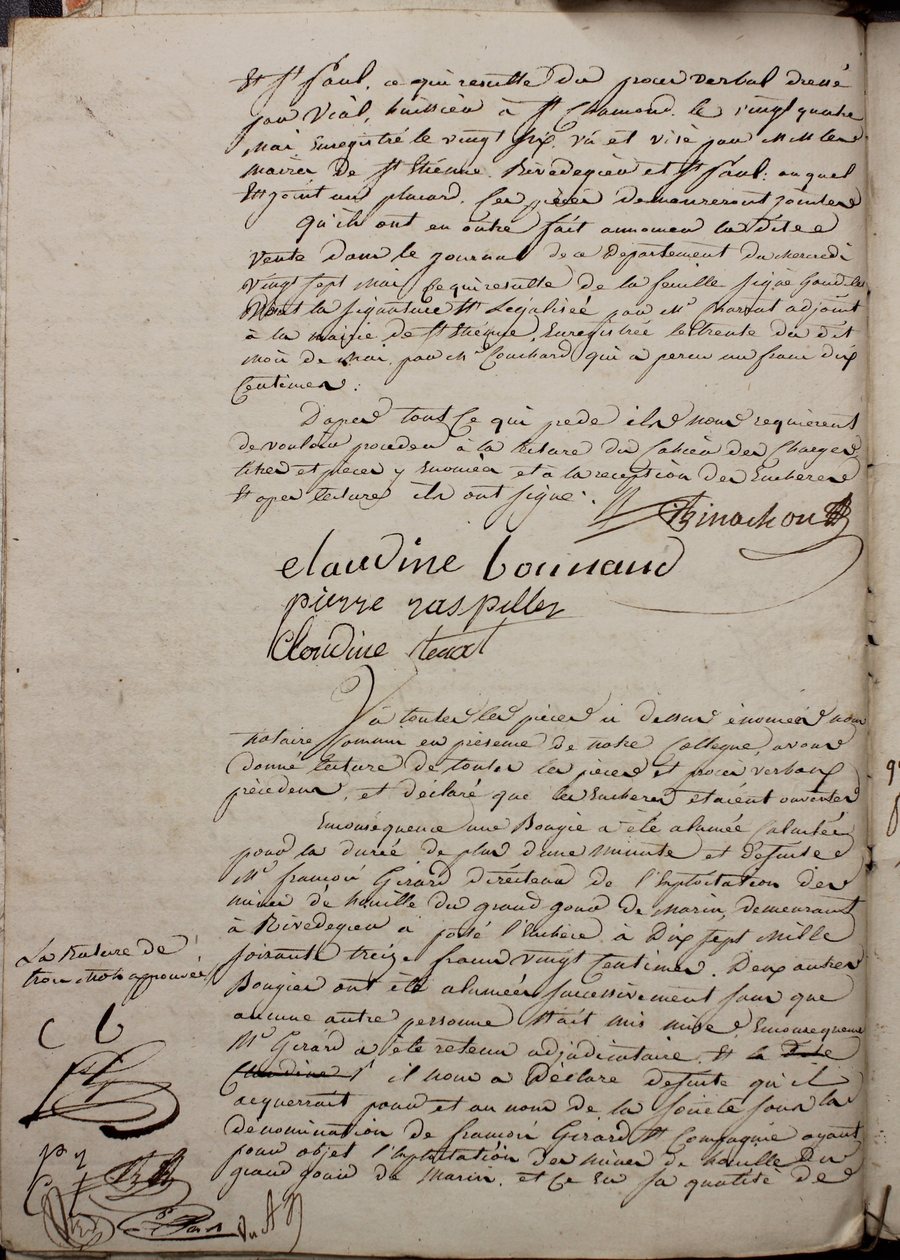 et St Paul, ce qui resulte du procer verbal dressé
par Vial, huissier à St Chamond, le vingt quatre
Mai Enregistré le vingt six, vû et visé par MM les
maires de St Etienne, Rivedegier et St Paul; auquel
Est joint un placard. Ces pièces demeureront jointes
Qu'ils ont en outre fait annoncer la dite
Vente dans le journal de ce Département du mercredi
vingt sept mai, ce qui resulte de la feuille signé
Dont la signature Est Légalisée par Mr adjoint
à la mairie de St Etienne, Enregistrée le trente du dit
mois de mai, par Mr Couchard qui a percu un franc dix
Centimes.
D'apres tout ce qui prede ils nous requierent
de vouloir proceder à la lecture du Cahier des Charges
titres et pieces y Enoncées et à la reception des Encheres
Et apres lecture ils ont signé.
Finachon
claudine bonnand
pierre raspiller
Cloudine
Vû toutes les pièces ci dessus énoncées nous
notaire Commis en présence de notre Collegue, avons
donné lecture de toutes les pièces et procès verbaux
précedens, et déclaré que les Encheres étaient ouvertes
En conséquence une Bougie a été alumée Calculée
pour la durée de plus d'une minute et Desuite
Mr francois Girard directeur de l'Exploitation des
mines de houille du grand gour de Marin, demeurant
à Rivedegier a porté l'Enchère à Dix sept Mille
soixante treize francs vingt Centimes. Deux autres
Bougies ont été alumées successivement sans que
aucune autre personne Etait mis mise Enconsequence
Mr Girard a été retenu adjudicataire. Et la Dite
Claudine il nous a Déclaré desuite qu'il
acquerrait pour et au nom de la société sous la
denomination de francois Girard Et Compagnie ayant
pour objet l'Exploitation des mines de houille Du
grand gour de Marin. et Ce En sa qualité de
La rature de
trois mots approuvée
C b
P r
C t